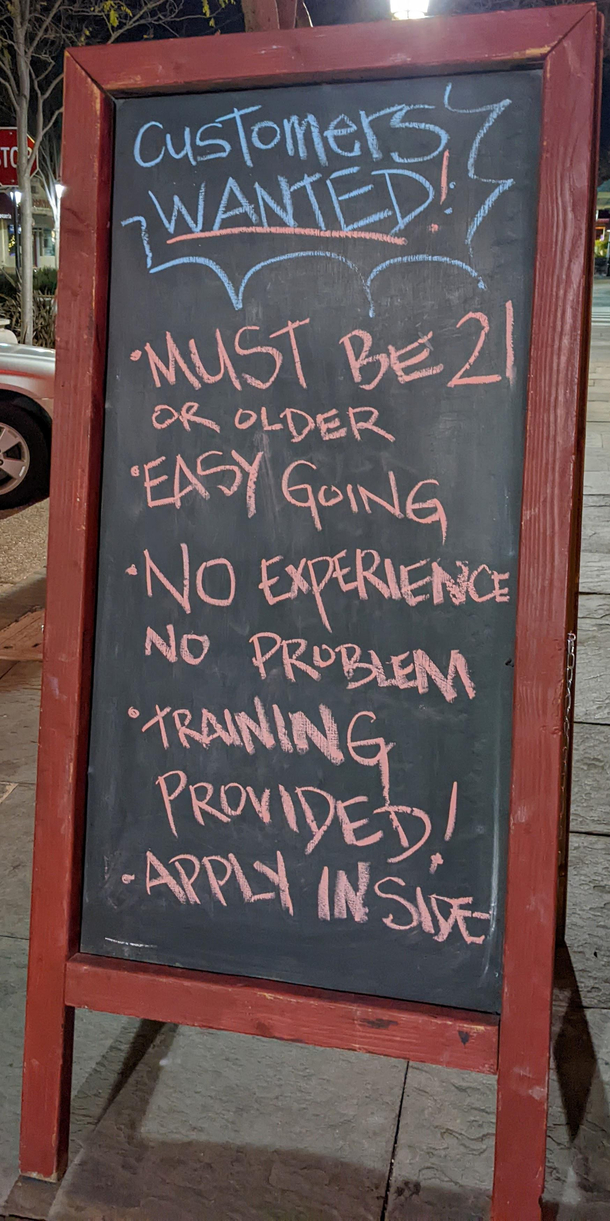 Customers
WANTED!
•MUST BE 21
OR OLDER
•EASY GOING
•NO EXPERIENCE
NO PROBLEM
•TRAINING
PROVIDED!
•APPLY INSIDE